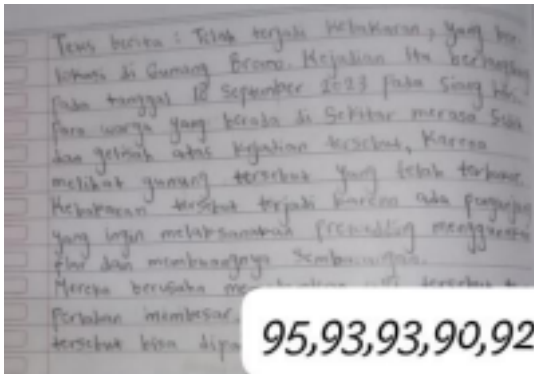 Teks berita : Telah terjadi kebakaran, yang ber
lokasi di Gunung Bromo. Kejadian itu berlangsung
pada tanggal 18 September 2023 pada siang
Para warga yang berada di sekitar merasa sedih
dan gelisah atas kejadian tersebut, karena
melihat gunung tersebut yang telah terbakar.
Kebakaran tersebut terjadi karena ada pengunjung
yang ingin melaksanakan prewedding menggunakan
flar dan membuangnya sembarangan.
Mereka berusaha tersebut
perlahan membesar,
tersebut bisa dipa
95,93,93,90,92